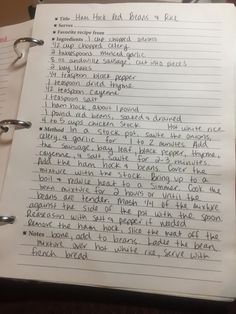 Title Ham Hock Red Beans & Rice
Serves
Favorite recipe from
Ingredients 1 cup chopped onions
1/2 cup chopped celery
2 tablespoons minced garlic
8 oz andouille sausage, cut into pieces
2 bay leaks
1/4 teaspoon black pepper
1 teaspoon dried thyme
1/2 teaspoon cayenne
1 teaspoon salt
1 ham hock, about 1 pound
1 pound red beans, soaked & drained
4 to 5 cups chicken stock Hot white rice
Method In a stock pot, saute the onions,
celery, & garlic for 1 to 2 minutes. Add
the sausage, bay leaf, black pepper, thyme,
cayenne, & salt. Saute for 2-3 minutes.
Add the ham hock & beans. Cover the
mixture with the stock. Bring up to a
boil & reduce heat to a simmer. Cook the
bean mixture for 2 hours or until the
beans are tender. Mash 1/4 of the mixture
against the side of the pot with the spoon.
Reseason with salt & pepper if needed.
Remove the ham hock, slice the meat off the
Notes bone, add to beans. Ladle the bean
mixture over hot white rice, serve with
french bread.